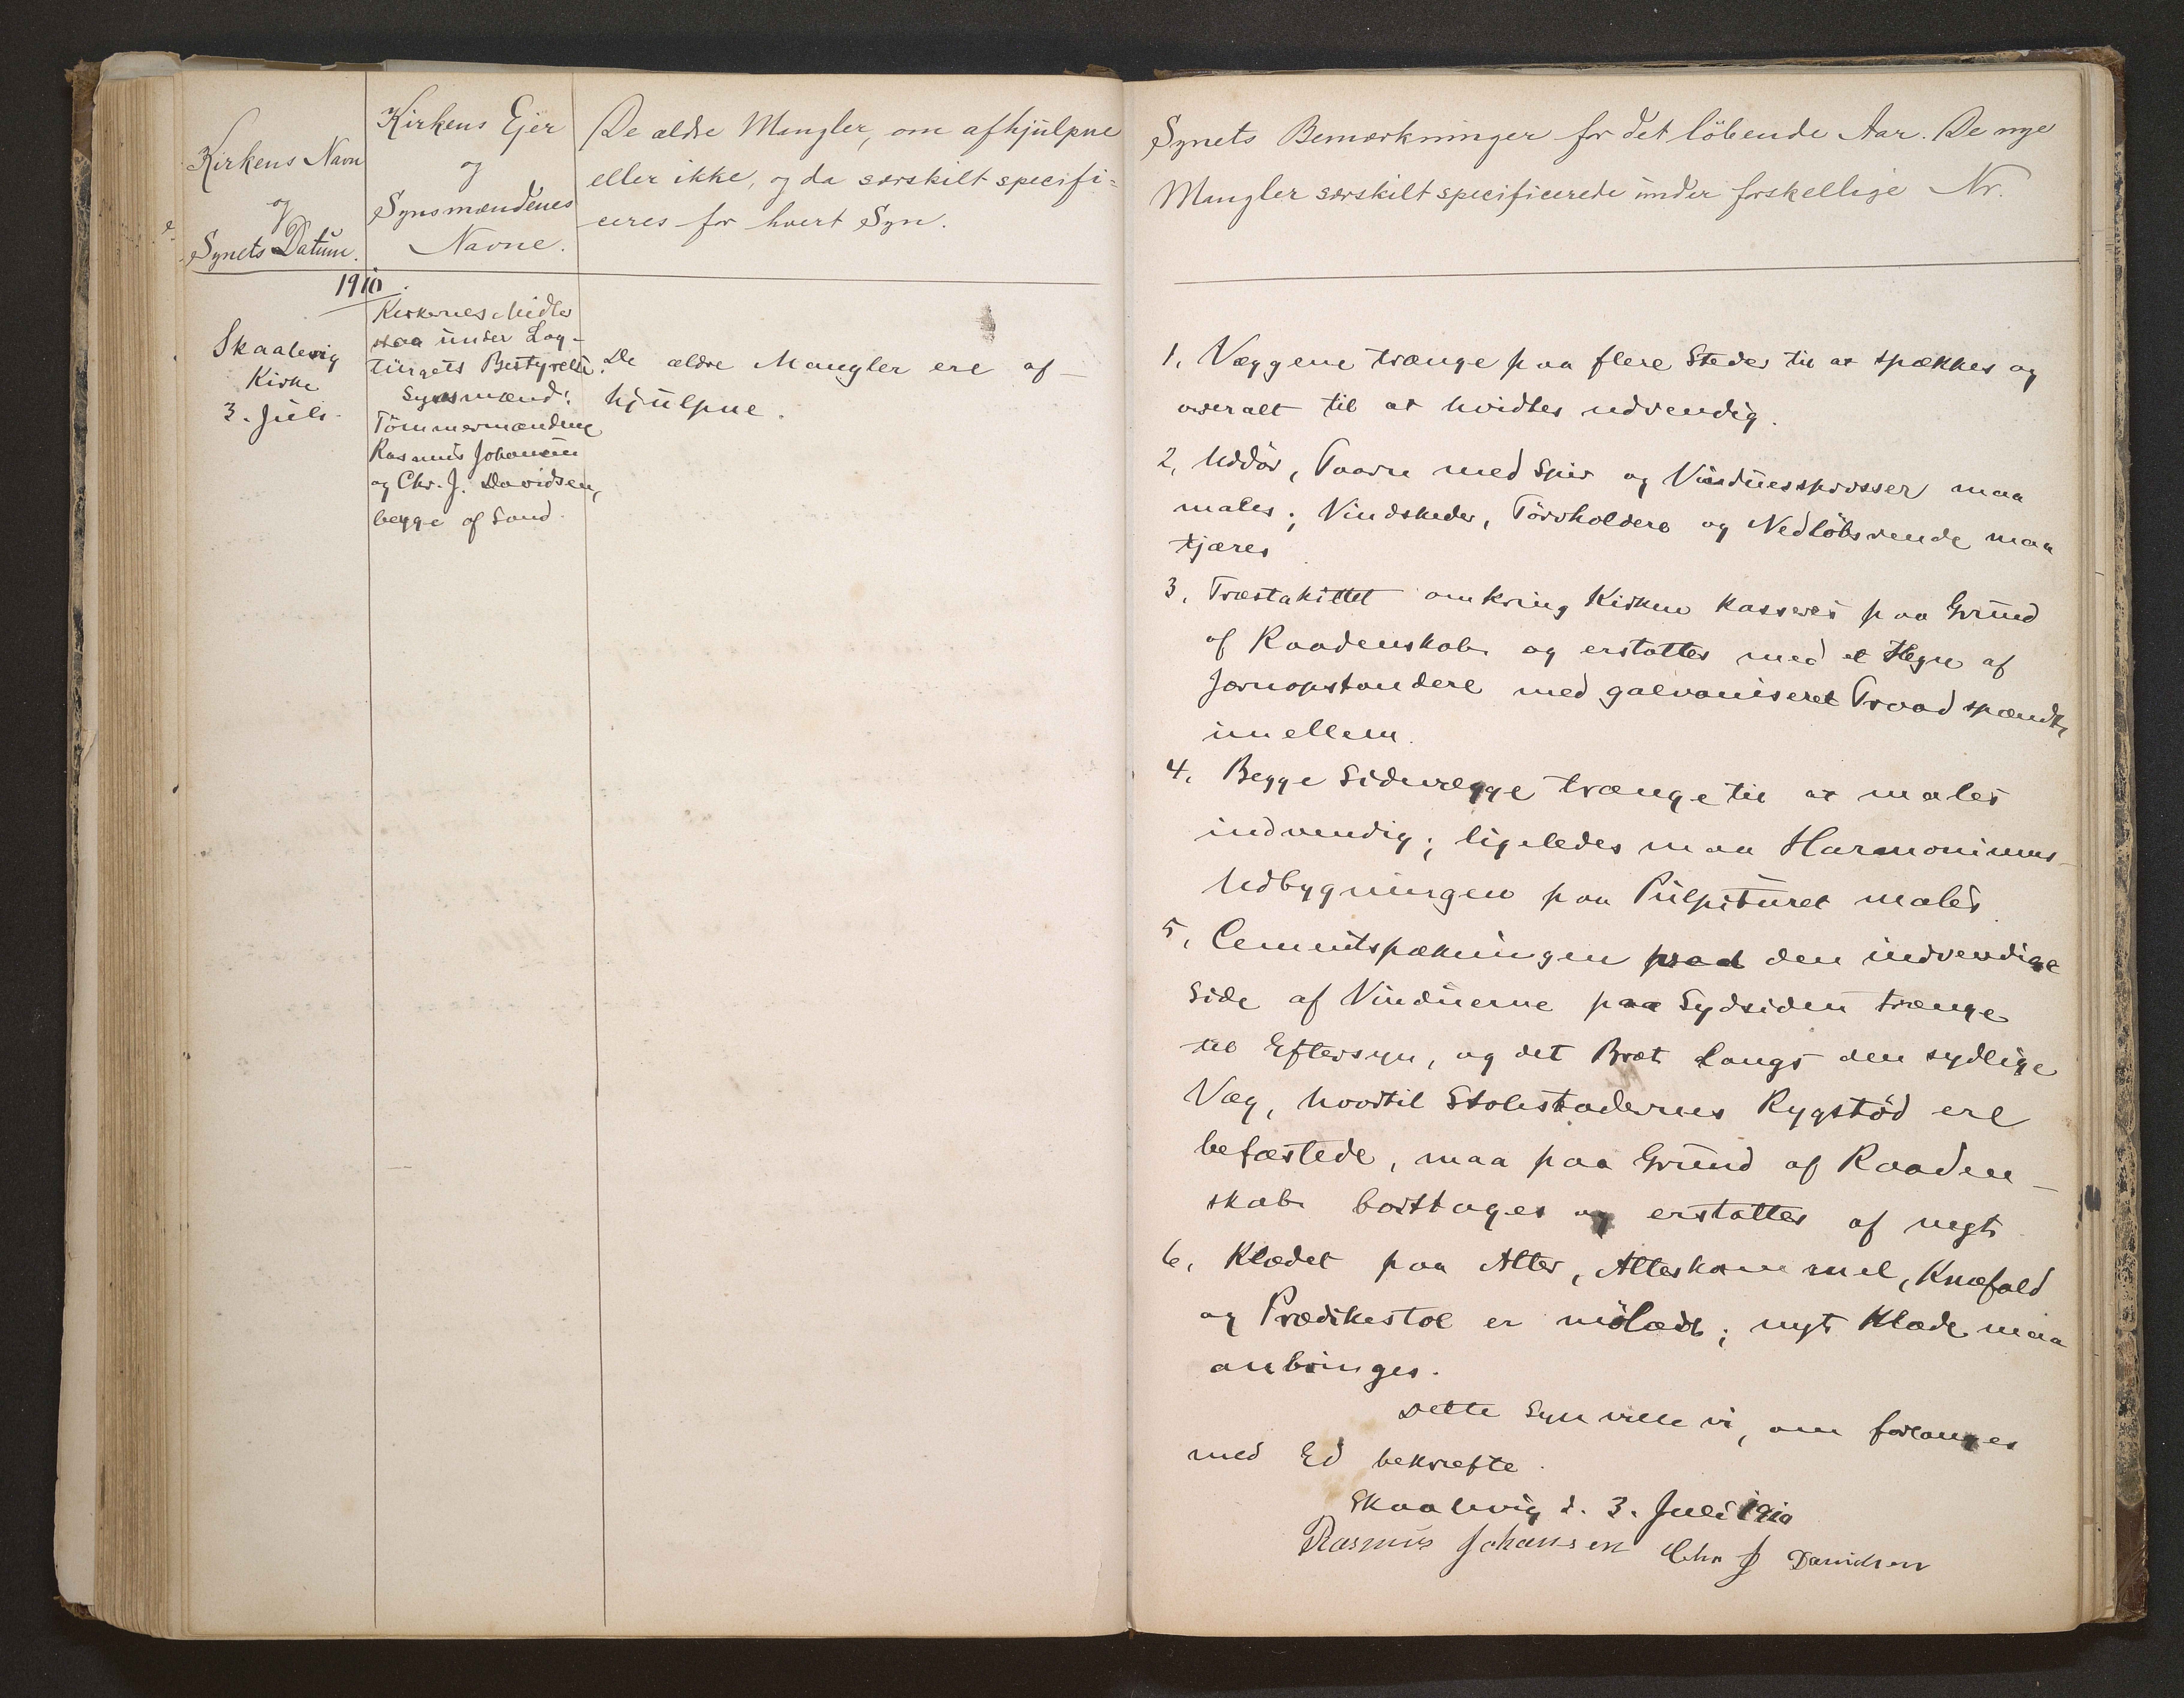 Kirkens Navn
og
Synets Datum.
Kirkens Ejer
og
Synsmændenes
Navne.
De ældre Mangler, om afhjulpne
eller ikke, og da særskilt specifi=
ceres for hvert Syn.
1910.
Skaalevig
Kirke
3. Juli.
Kirkernes Midler
staa under Lag-
tingets Bestyrelse.
Synsmænd:
Tömmermændene
Rasmus Johansen
og Chr. J. Davidsen,
begge af Sand.
De ældre Mangler ere af-
hjulpne.
Synets Bemærkninger for det löbende Aar. De nye
Mangler særskilt specificerede under forskellige Nr.
1, Væggene trænge paa flere Steder til at spækkes og
overalt til at hvidtes udvendig.
2, Uddör, Taarn med Spir og Vinduessprosser maa
males; Vindskeder, Törvholdere og Nedlöbsrende maa
tjæres
3, Træstakittet omkring Kirken kasseres paa Grund
af Raadenskab og erstattes med et Hegn af
Jærnopstandere med galvaniseret Traad spændt
imellem.
4, Begge Sidevægge trænge til at males
indvendig; ligeledes maa Harmoniums-
Udbygningen paa Pulpituret males
5, Cementspækningen paa den indvendige
Side af Vinduerne paa Sydsiden trænge
til Eftersyn, og det Bræt langs den sydlige
Væg, hvortil Stolestadernes Rygstöd ere
befæstede, maa paa Grund af Raaden-
skab borttages og erstattes af nyt
6, Klædet paa Alter, Alterskammel, Knæfald
og Prædikestol er mölædt; nyt Klæde maa
anbringes.
Dette Syn ville vi, om forlanges
med Ed bekræfte.
Skaalevig d. 3. Juli 1910
Rasmus Johansen Chr J Davidsen